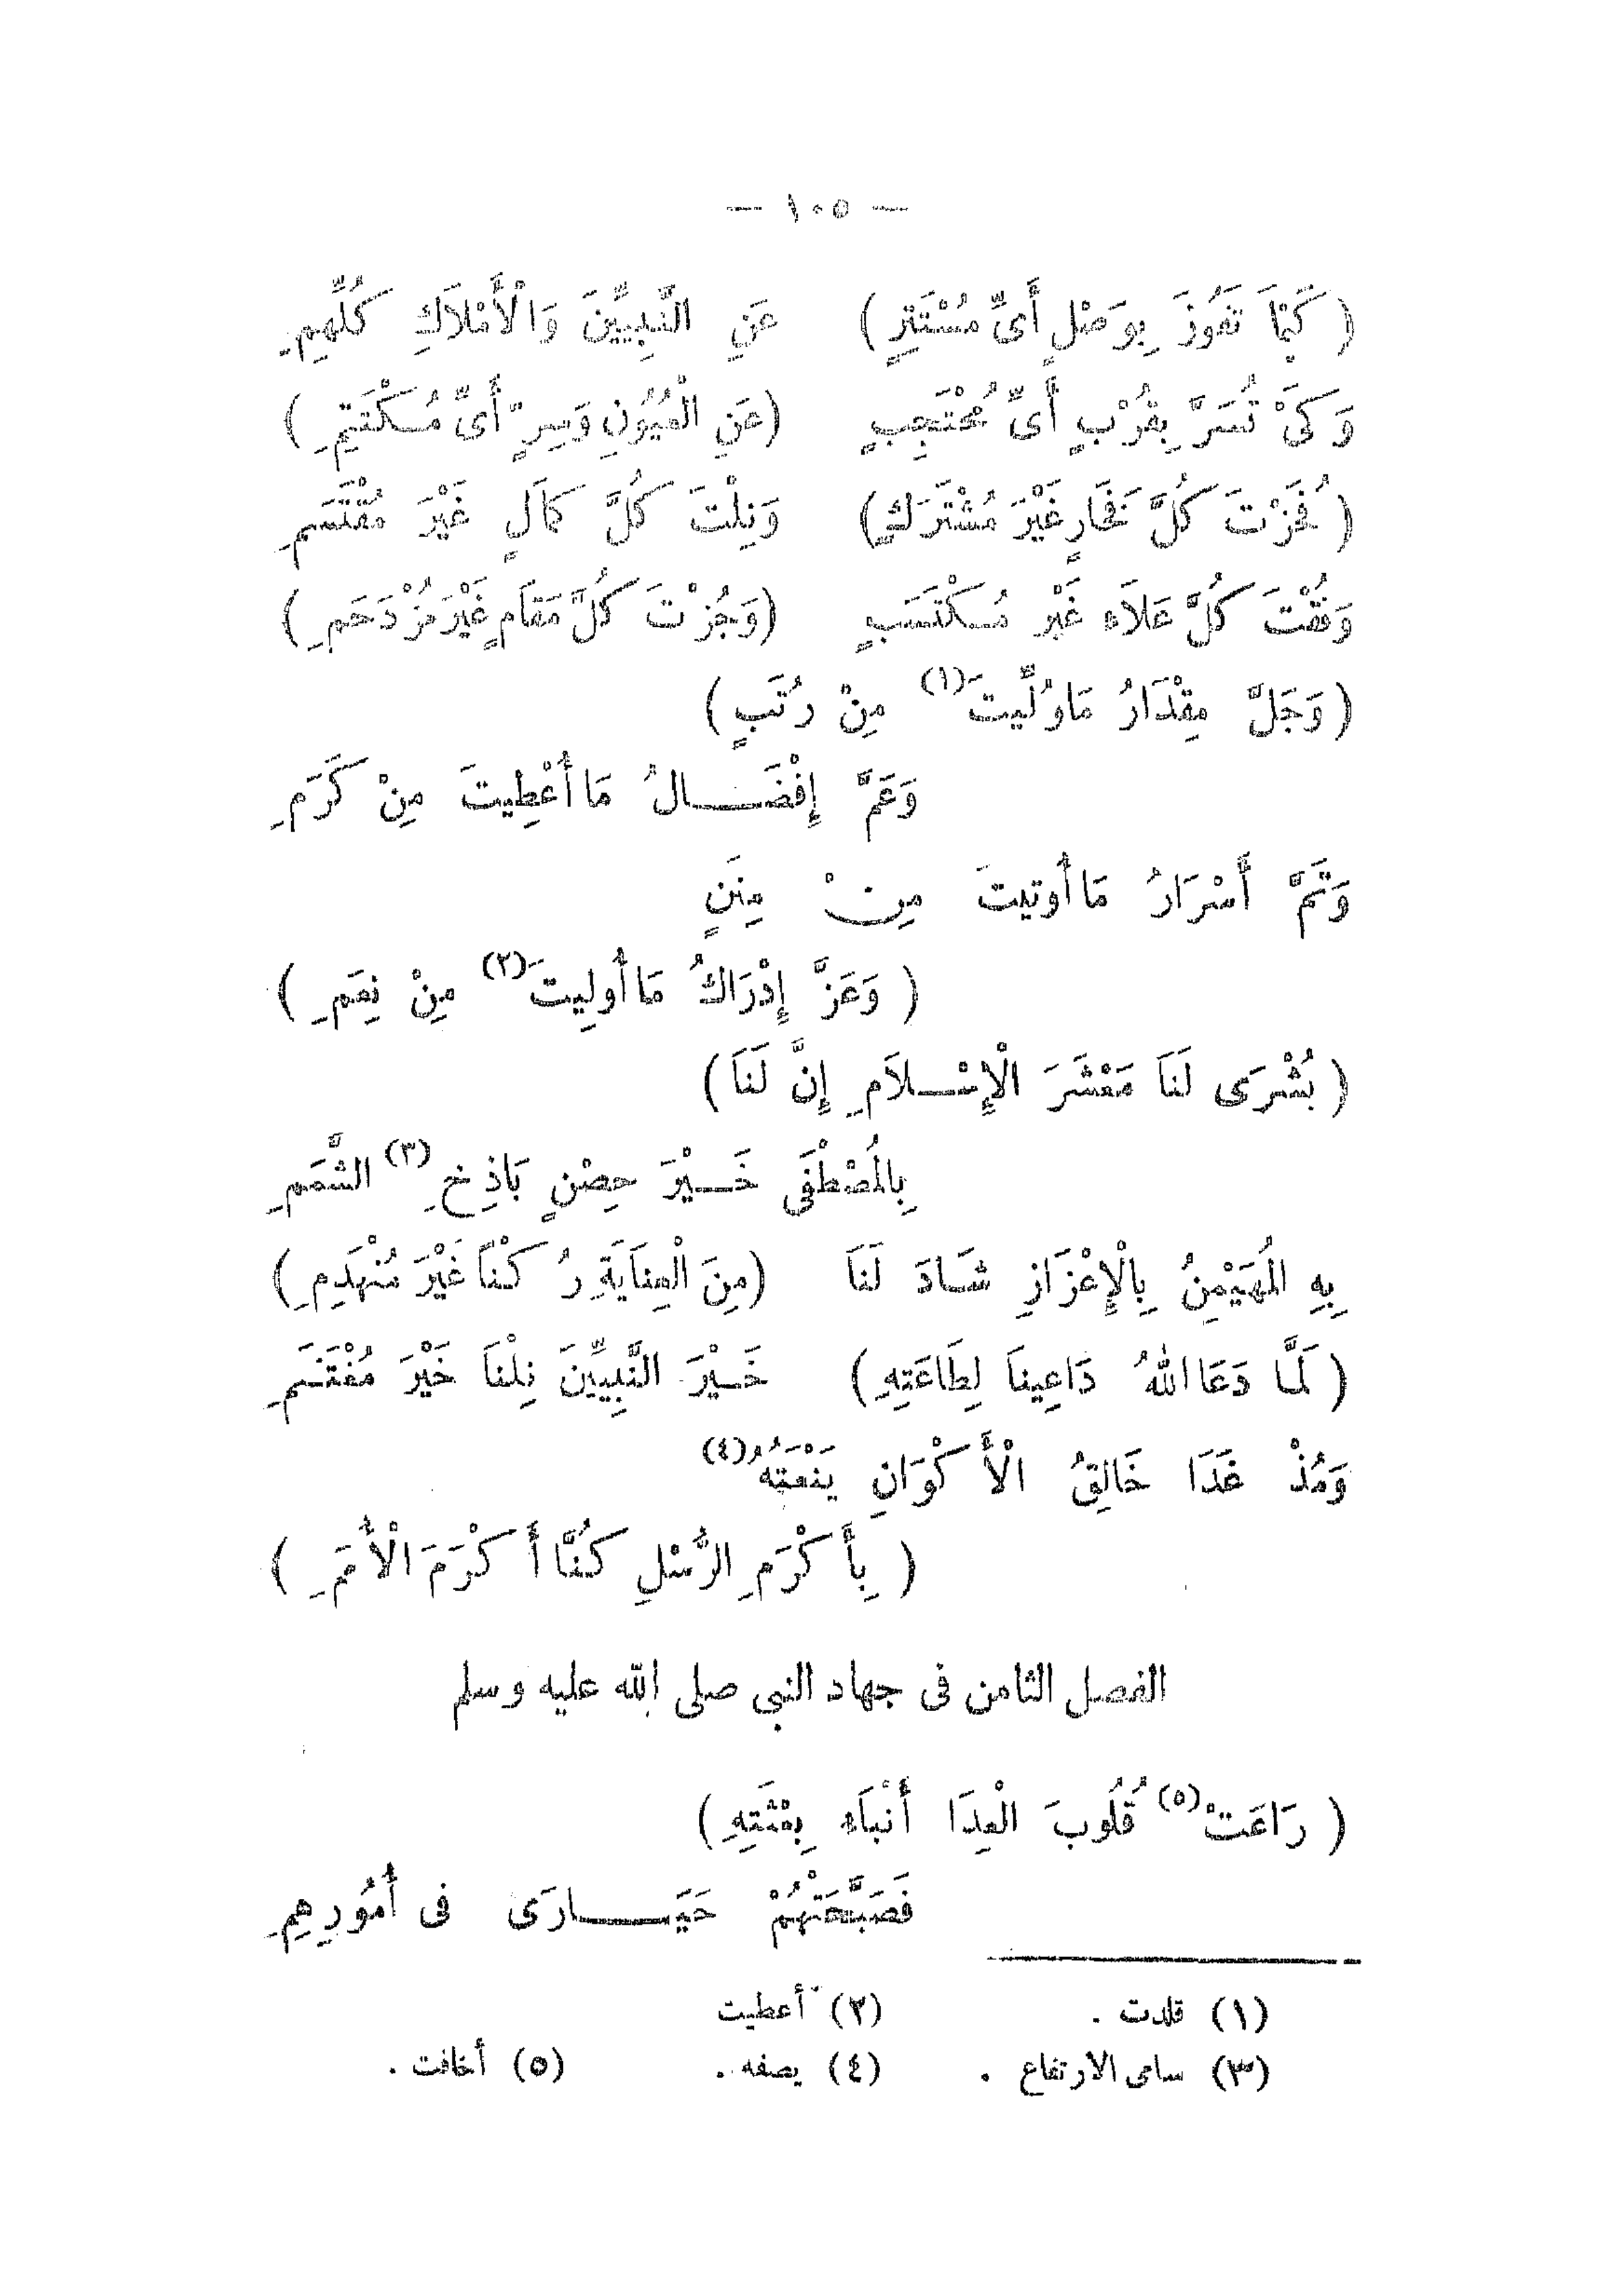 — ١٠٥ —
(كَيْمَا تَفُوزَ بِوَصْلٍ أَىِّ مُسْتَتِرٍ) عَنِ النَّبِيِّينَ وَالْأَمْلَاكِ كُلِّهِمِ
وَكَىْ تُسَرَّ بِقُرْبٍ أَىِّ مُحْتَجِبٍ (عَنِ الْعُيُونِ وَسِرٍّ أَىِّ مُكْتَتِمِ)
(فَحُزْتَ كُلَّ فَخَارٍ غَيْرَ مُشْتَرَكٍ) وَنِلْتَ كُلَّ كَمَالٍ غَيْرَ مُقْتَسَمِ
وَفُقْتَ كُلَّ عَلَاءٍ غَيْرِ مُكْتَسَبٍ (وَجُزْتَ كُلَّ مَقَامٍ غَيْرَ مُزْدَحَمِ)
(وَجَلَّ مِقْدَارُ مَا وُلِّيتَ (١) مِنْ رُتَبٍ)
وَعَمَّ إِفْضَالُ مَا أُعْطِيتَ مِنْ كَرَمِ
وَتَمَّ أَسْرَارُ مَا أُوتِيتَ مِنْ مِنَنٍ
(وَعَزَّ إِدْرَاكُ مَا أُولِيتَ (٢) مِنْ نِعَمِ)
(بُشْرَى لَنَا مَعْشَرَ الْإِسْلَامِ إِنَّ لَنَا)
بِالْمُصْطَفَى خَيْرَ حِصْنٍ بَاذِخِ (٣) الشَّمَمِ
بِهِ الْمُهَيْمِنُ بِالْإِعْزَازِ شَادَ لَنَا (مِنَ الْعِنَايَةِ رُكْنًا غَيْرَ مُنْهَدِمِ)
(لَمَّا دَعَا اللهُ دَاعِينَا لِطَاعَتِهِ) خَيْرَ النَّبِيِّينَ نِلْنَا خَيْرَ مُغْتَنَمِ
وَمُذْ غَدَا خَالِقُ الْأَكْوَانِ يَنْعَتُهُ (٤)
(بِأَكْرَمِ الرُّسْلِ كُنَّا أَكْرَمَ الْأُمَمِ)
الفصل الثامن فى جهاد النبى صلى الله عليه وسلم
(رَاعَتْ (٥) قُلُوبَ الْعِدَا أَنْبَاءُ بِعْثَتِهِ)
فَصَبَّحَتْهُمْ حَيَارَى فى أُمُورِهِمِ
(١) قلدت . (٢) أعطيت
(٣) سامى الارتفاع . (٤) يصفه . (٥) أخافت .